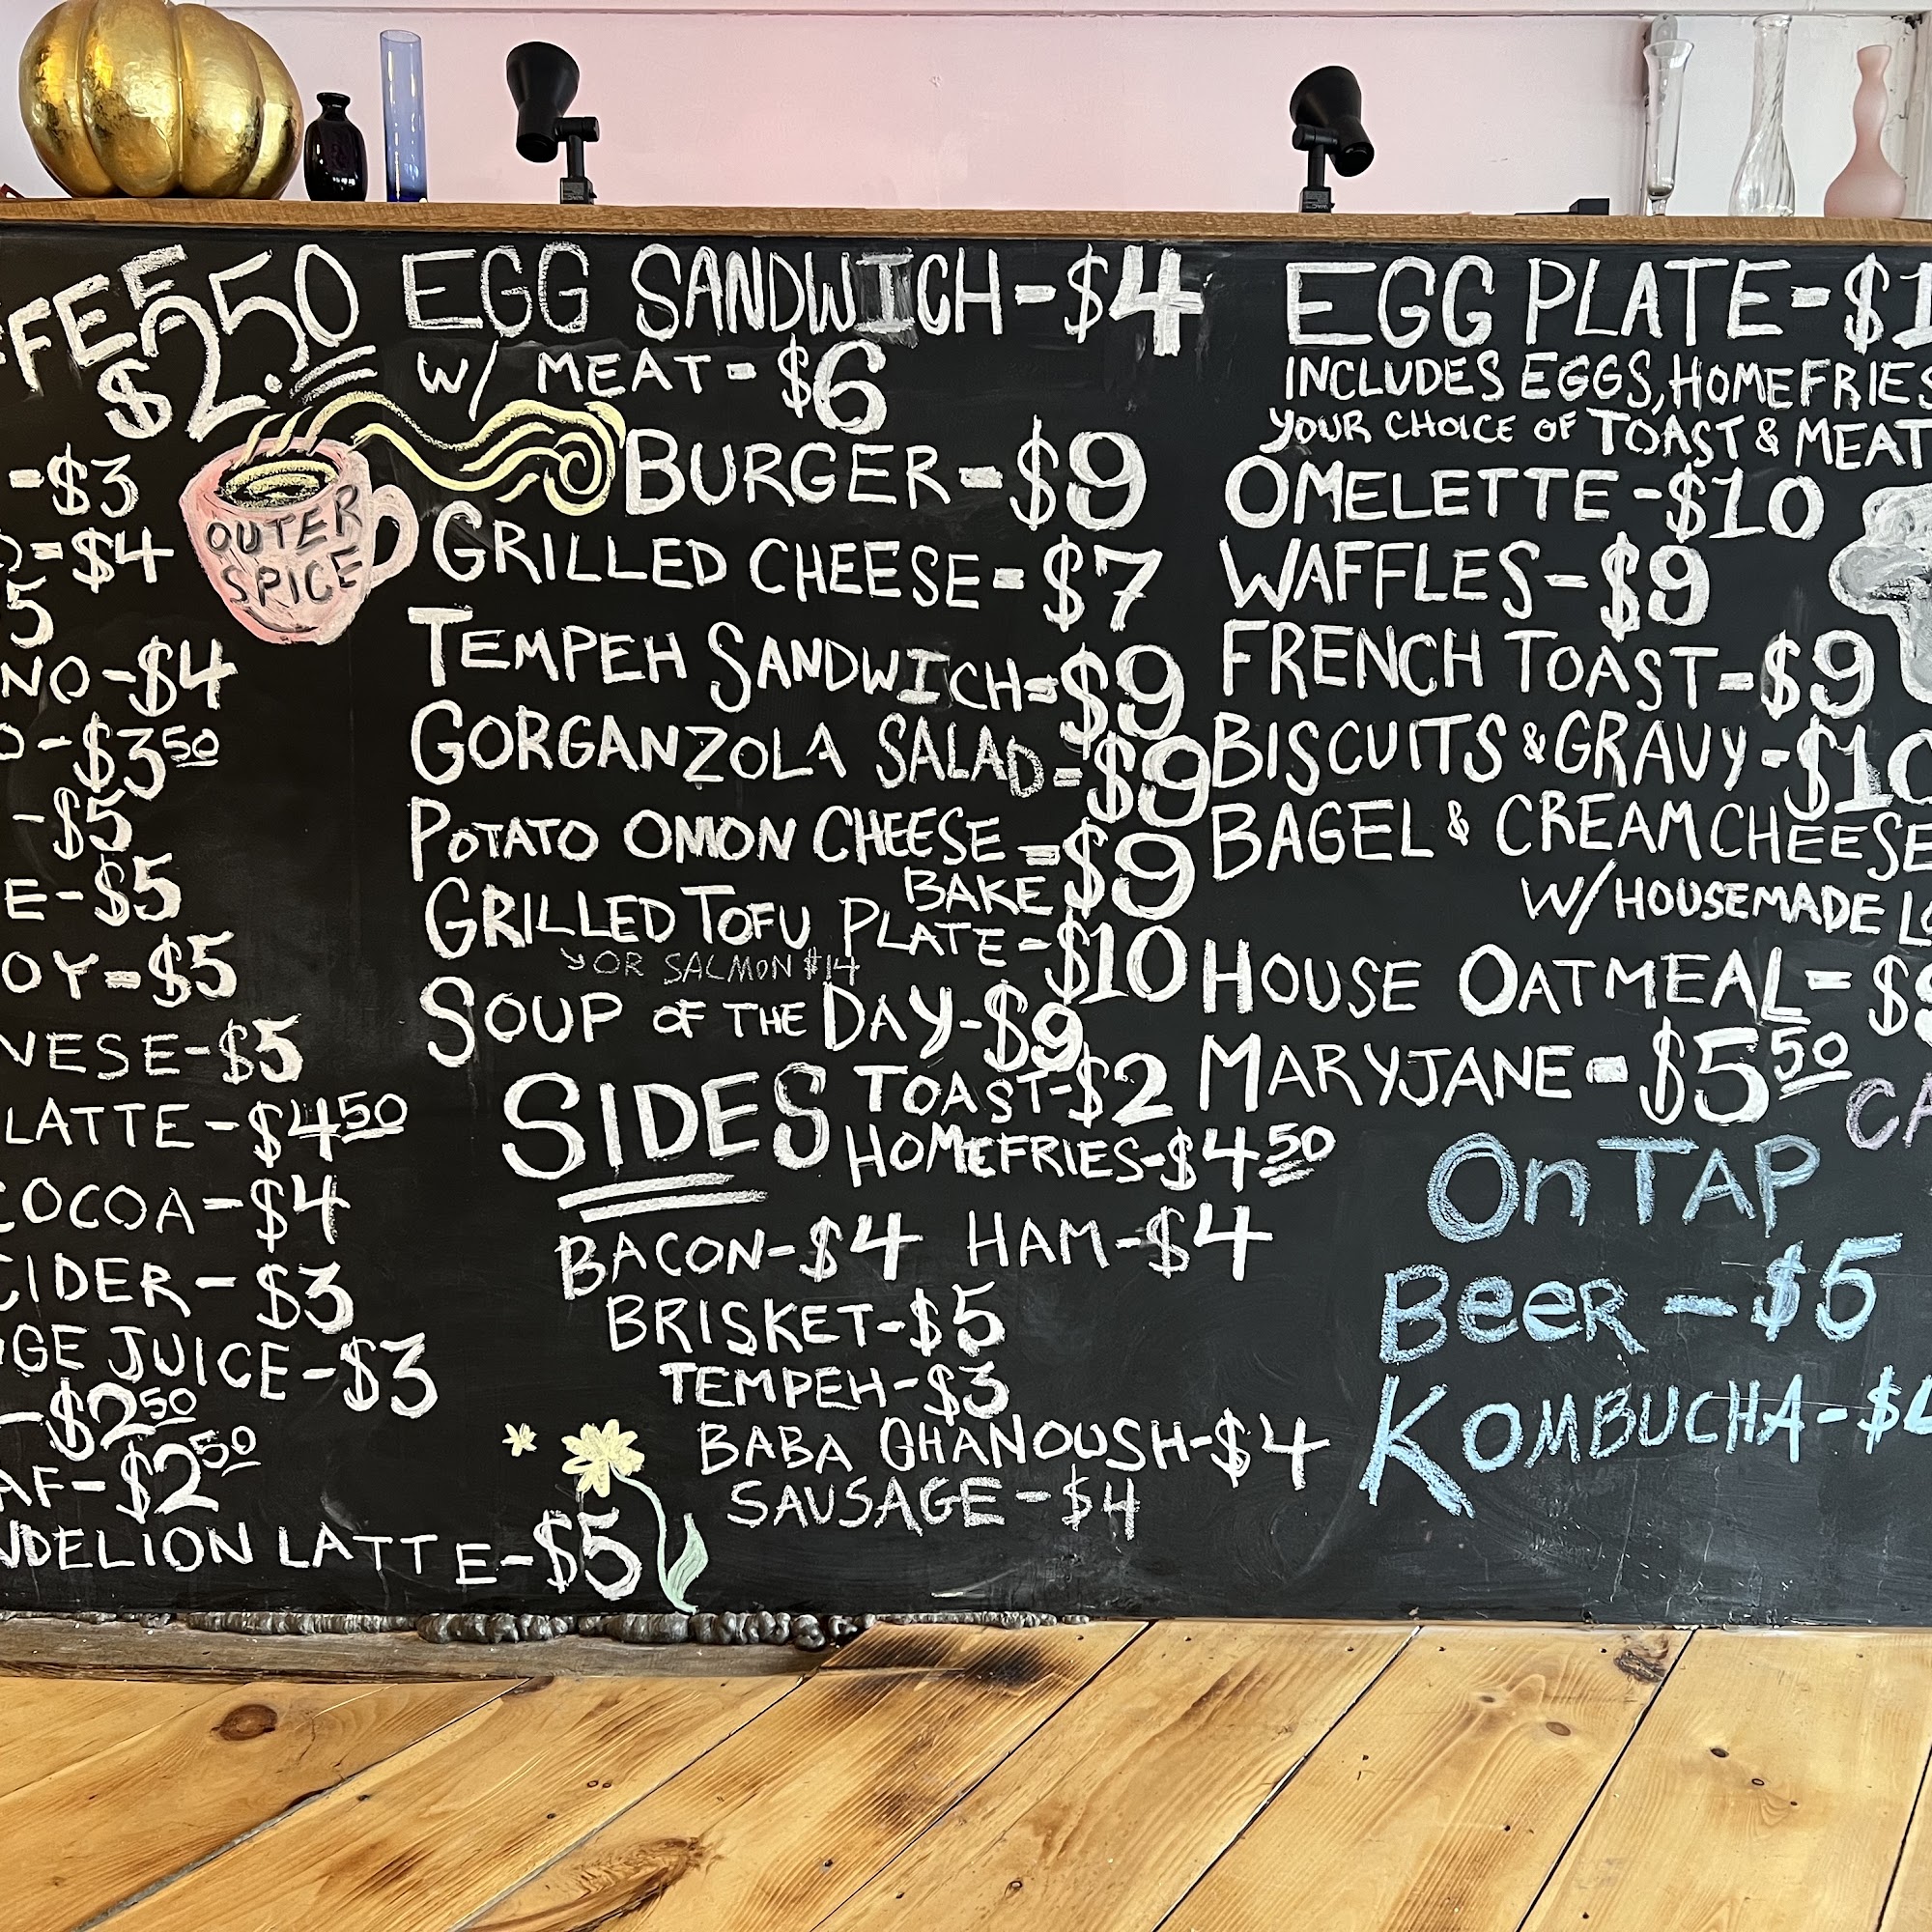 $2.50
-$3
-$4
5
-$4
-$3 50
-$5
E-$5
OY-$5
NESE-$5
LATTE-$4 50
COCOA-$4
CIDER-$3
JUICE-$3
-$2 50
AF-$2 50
NDELION LATTE-$5
OUTER
SPICE
EGG SANDWICH-$4
W/ MEAT-$6
BURGER-$9
GRILLED CHEESE-$7
TEMPEH SANDWICH-$9
GORGANZOLA SALAD-$9
POTATO ONION CHEESE-$9
BAKE
GRILLED TOFU PLATE-$10
OR SALMON $14
SOUP OF THE DAY-$9
SIDES
TOAST-$2
HOMEFRIES-$4 50
BACON-$4 HAM-$4
BRISKET-$5
TEMPEH-$3
BABA GHANOUSH-$4
SAUSAGE-$4
EGG PLATE-$1
INCLUDES EGGS, HOMEFRIES
YOUR CHOICE OF TOAST & MEAT
OMELETTE-$10
WAFFLES-$9
FRENCH TOAST-$9
BISCUITS & GRAVY-$10
BAGEL & CREAMCHEESE
W/HOUSEMADE
HOUSE OATMEAL=$
MARYJANE-$5 50
CA
On TAP
Beer-$5
KOMBUCHA-$